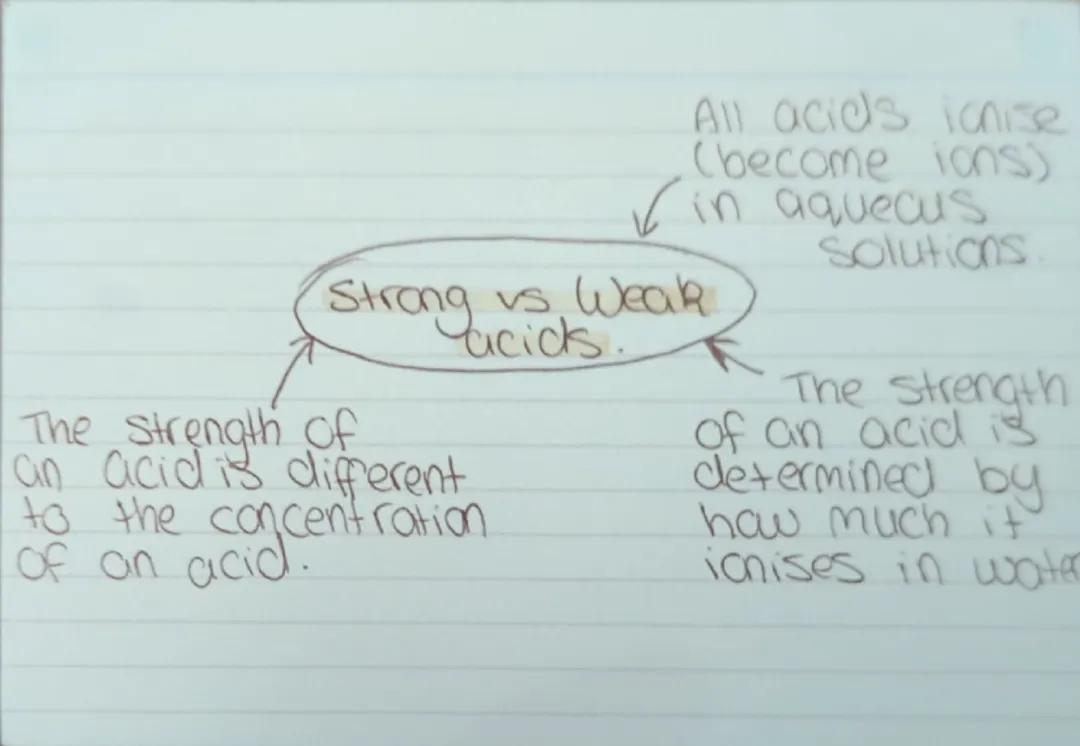 All acids ionise
(become ions)
in aqueous
solutions.
Strong vs Weak
acids.
The strength of
an acid is different
to the concentration
of an acid.
The strength
of an acid is
determined by
how much it
ionises in water